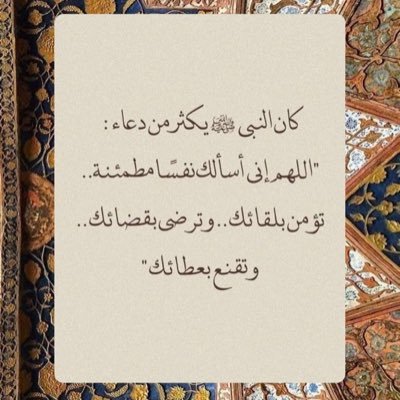 كان النبي ﷺ يكثر من دعاء :
"اللهم إنى أسألك نفسًا مطمئنة..
تؤمن بلقائك..وترضى بقضائك..
وتقنع بعطائك"